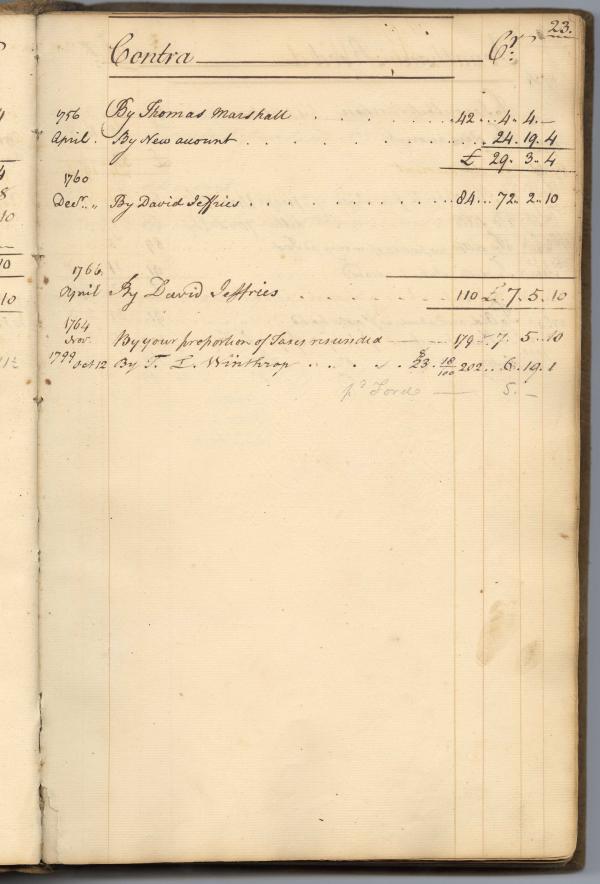 23.
Contra Cr.
1756 By Thomas Marshall 42 4 4 –
April. By New account 24. 19. 4
£ 29. 3. 4
1760
Decr. By David Jeffries 84 72. 2. 10
1766.
April By David Jeffries 110 £ 7. 5. 10
1764
Nov. By your proportion of Taxes 179 £ 7. 5. 10
1799 Oct 12 By T. L. Winthrop $ 23. 18/100 202 6. 19. 1
pd Ford — 5. –
4
8
10
10
10